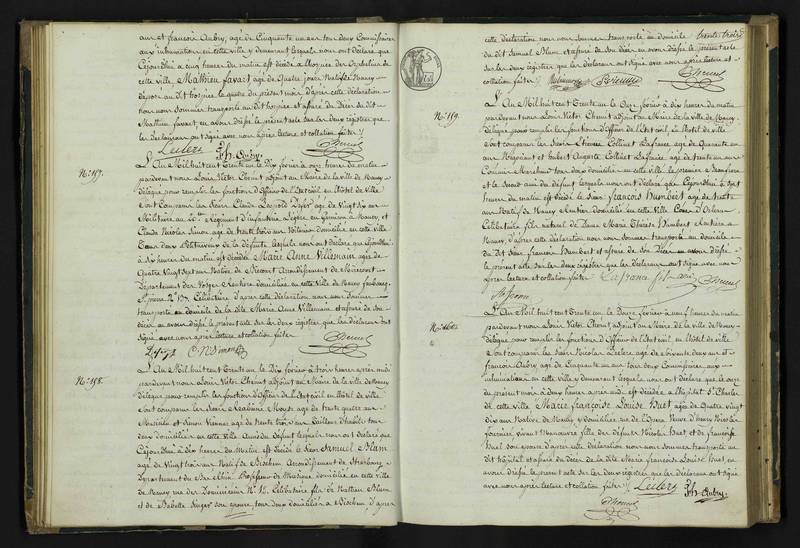 aux et françois Aubry, age de Cinquante un ans tous deux Commissaires
aux inhumations en cette ville y demeurant lesquels nous ont déclaré que
Cejourd'hui à cinq heures du matin est décédé à l'hospice des Orphelins de
cette ville Mathieu Favart agé de Quatre jours Natif de Nancy
déposé au dit hospice le quatre du présent mois d'après cette déclaration
nous nous sommes transporté au dit hospice et assuré du Décès du dit
Mathieu favart, en avons dressé le présent acte sur les deux registres que
les déclarants ont signé avec nous après lecture et collation faites
Leclerc fch. Aubry
No. 157.
L'An Mil huit cent Trente un le Dix février à onze heures du matin
pardevant nous Louis Victor Chenut adjoint au Maire de la ville de Nancy
délégué pour remplir les fonctions d'officier de l'Etat civil en l'hôtel de ville
Sont Comparus les Sieurs Claude Léopold age de Vingt six ans
Militaire au Régiment d'infanterie Légère en Garnison à Nancy, et
Claude Nicolas Simon age de trente trois ans Voiturier domicilié en cette ville
tous deux de la défunte lesquels nous ont déclaré que Cejourd'hui
à six heures du matin est décédée Marie Anne Villemain agée de
Quatre Vingt sept ans Native de Arrondissement de Mirecourt
Département des Vosges Rentière domiciliée en cette Ville de Nancy faubourg
St. pierre No. 137. Célibataire d'après cette déclaration nous nous sommes
transporté au domicile de la dite Marie Anne Villemain et assuré de son
décès en avons dressé le présent acte sur les deux registres que les déclarants ont
signé avec nous après lecture et collation faites
C. N. Simon
No. 158.
L'An Mil huit cent Trente un le Dix février à trois heures après midi
pardevant nous Louis Victor Chenut adjoint au Maire de la ville de Nancy
délégué pour remplir les fonctions d'officier de l'Etat civil en l'hôtel de ville
Sont comparus les Sieurs age de trente quatre ans
et Simon Vienner age de trente trois ans Tailleur d'habits tous
deux domiciliés en cette Ville Amis du défunt lesquels nous ont déclaré que
Cejourd'hui à dix heures du Matin est décédé le Sieur Samuel Blum
age de Vingt trois ans Natif de Bischem Arrondissement de Strasbourg
Département du Bas Rhin Professeur de Musique domicilié en cette ville
de Nancy rue des Dominicains No. 12. Célibataire fils de Nathan Blum
et de Babette son épouse, tous deux domiciliés à Bischem d'après
trente trois
cette déclaration nous nous sommes transporté au domicile
du dit Samuel Blum et assuré de son décès en avons dressé le présent acte
sur les deux registres que les déclarants ont signé avec nous après lecture et
collation faites
No. 159.
L'An Mil huit cent Trente un le Onze février à dix heures du matin
pardevant nous Louis Victor Chenut adjoint au Maire de la ville de Nancy
délégué pour remplir les fonctions d'officier de l'Etat civil, en l'hôtel de ville
Sont comparus les Sieurs Etienne Collinet Lafrance age de Quarante un
ans Négociant et Hubert Auguste Collinet Lafrance age de trente un ans
Commis Marchand tous deux domiciliés en cette ville, le premier
et le Second ami du défunt lesquels nous ont déclaré que Cejourd'hui à Sept
heures du matin est décédé le Sieur François Humbert age de trente
ans Natif de Nancy Rentier domicilié en cette Ville Cours d'Orléans
Célibataire fils naturel de Dame Marie Thérèse Humbert Rentière à
Nancy, d'après cette déclaration nous nous sommes transporté au domicile
du dit Sieur françois Humbert et assuré de son Décès en avons dressé
le présent acte sur les deux registres que les déclarants ont signé avec nous
après lecture et collation faites
Lafrance
No. 160.
L'An Mil huit cent Trente un le Douze février à neuf heures du matin
pardevant nous Louis Victor Chenut adjoint au Maire de la ville de Nancy
délégué pour remplir les fonctions d'officier de l'Etat civil, en l'hôtel de ville
Sont comparus les Sieurs Nicolas Leclerc age de soixante deux ans et
françois Aubry age de Cinquante un ans tous deux Commissaires aux
inhumations en cette ville y demeurant lesquels nous ont déclaré que le onze
du présent mois à deux heures après midi est décédée à l'hôpital St. Charles
de cette ville Marie Françoise Louise Huet agée de Quatre Vingt
dix ans Native de Neuilly y domiciliée en cette Ville Veuve d'henry Nicolas
fournier vivant Manoeuvre fille des défunts Nicolas Huet et de françoise
son épouse d'après cette déclaration nous nous sommes transporté au
dit Hôpital et assuré du décès de la dite Marie françoise Louise Huet, en
avons dressé le présent acte sur les deux registres que les déclarants ont signé
avec nous après lecture et collation faites
Leclerc fch. Aubry.